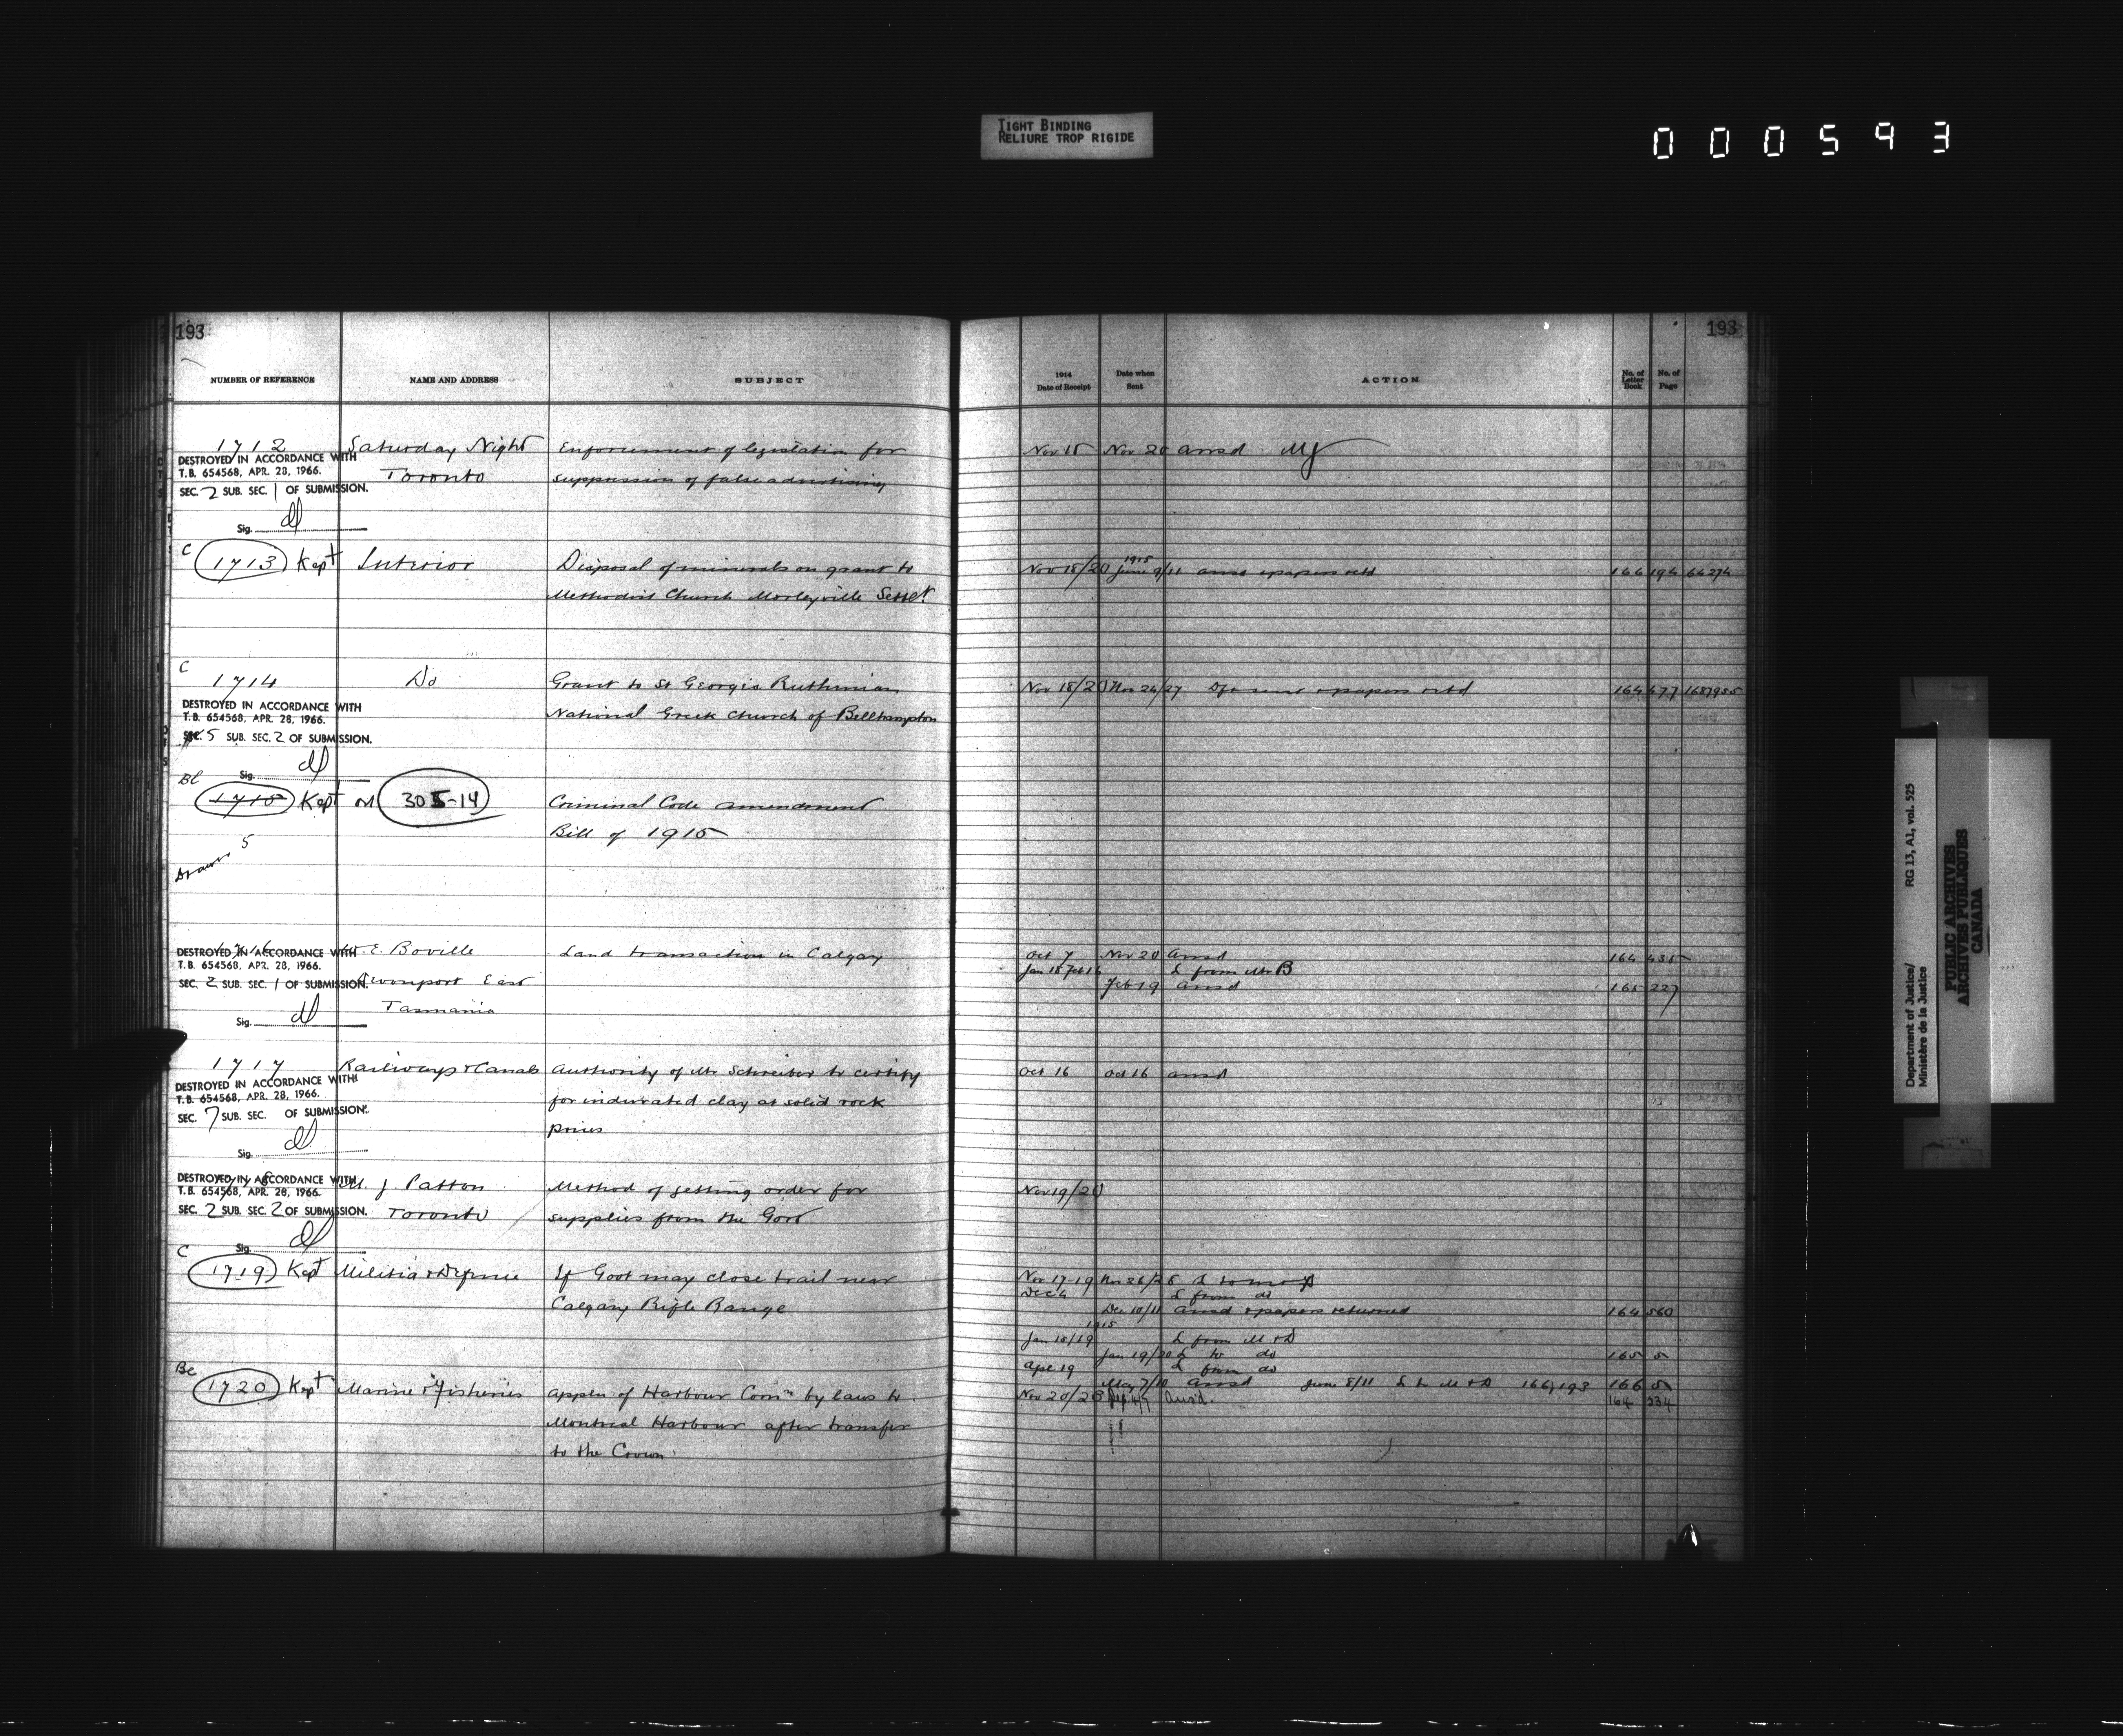 TIGHT BINDING
RELIURE TROP RIGIDE
000593
193
193
NUMBER OF REFERENCE NAME AND ADDRESS SUBJECT 1914 Date of Receipt Date when Sent ACTION No. of Letter Book No. of Page
1712 Saturday Night Enforcement of legislation for Nov 18 Nov 20 ansd
DESTROYED IN ACCORDANCE WITH
T.B. 654568, APR. 28, 1966. Toronto suppression of false advertising
SEC. 2 SUB. SEC. 1 OF SUBMISSION.
Sig.
C 1713 Kept Interior Disposal of minerals on grant to Nov 18/20 1915 June 9/11 ansd & papers retd 166 194 66274
Methodist Church Morleyville Settlt
C
1714 Do Grant to St Georgis Ruthenian Nov 18/20 Nov 26/27 papers retd 164 477 1687955
DESTROYED IN ACCORDANCE WITH National Greek Church of Bellhampton
T.B. 654568, APR. 28, 1966.
SEC. 5 SUB. SEC. 2 OF SUBMISSION.
Sig.
1715 Kept on 305-14 Criminal Code amendment
Bill of 1915
Drawer 5
1716 E. Boville Land transaction in Calgary Oct 7 Nov 20 Ansd 164 435
DESTROYED IN ACCORDANCE WITH
T.B. 654568, APR. 28, 1966. Jan 18 Feb 16 L from Mr B
SEC. 2 SUB. SEC. 1 OF SUBMISSION. Devonport East Feb 19 ansd 165 227
Tasmania
Sig.
1717 Railways & Canals Authority of Mr Schreiber to certify Oct 16 Oct 16 ansd
DESTROYED IN ACCORDANCE WITH
T.B. 654568, APR. 28, 1966. for indurated clay at solid rock
SEC. 7 SUB. SEC. OF SUBMISSION. prices
Sig.
DESTROYED IN ACCORDANCE WITH M. J. Patton Method of getting order for Nov 19/20
T.B. 654568, APR. 28, 1966.
SEC. 2 SUB. SEC. 2 OF SUBMISSION. Toronto supplies from the Govt
Sig.
C 1719 Kept Militia & Defence If Govt may close trail near Nov 17-19 Nov 26/28 L to
Dec 4 L from do
Calgary Rifle Range Dec 10/11 ansd & papers returned 164 560
1915
Jan 18/19 L from M & D
Jan 19/20 L to do 165 5
Apl 19 L from do
May 7/10 ansd June 8/11 L to M & D 166/193 166 5
1720 Kept Marine & Fisheries Appln of Harbour Comn by laws to Nov 20/23 Ansd. 164 534
Montreal Harbour after transfer
to the Crown
Department of Justice/ RG 13, A1, vol. 525
Ministère de la Justice
PUBLIC ARCHIVES
ARCHIVES PUBLIQUES
CANADA